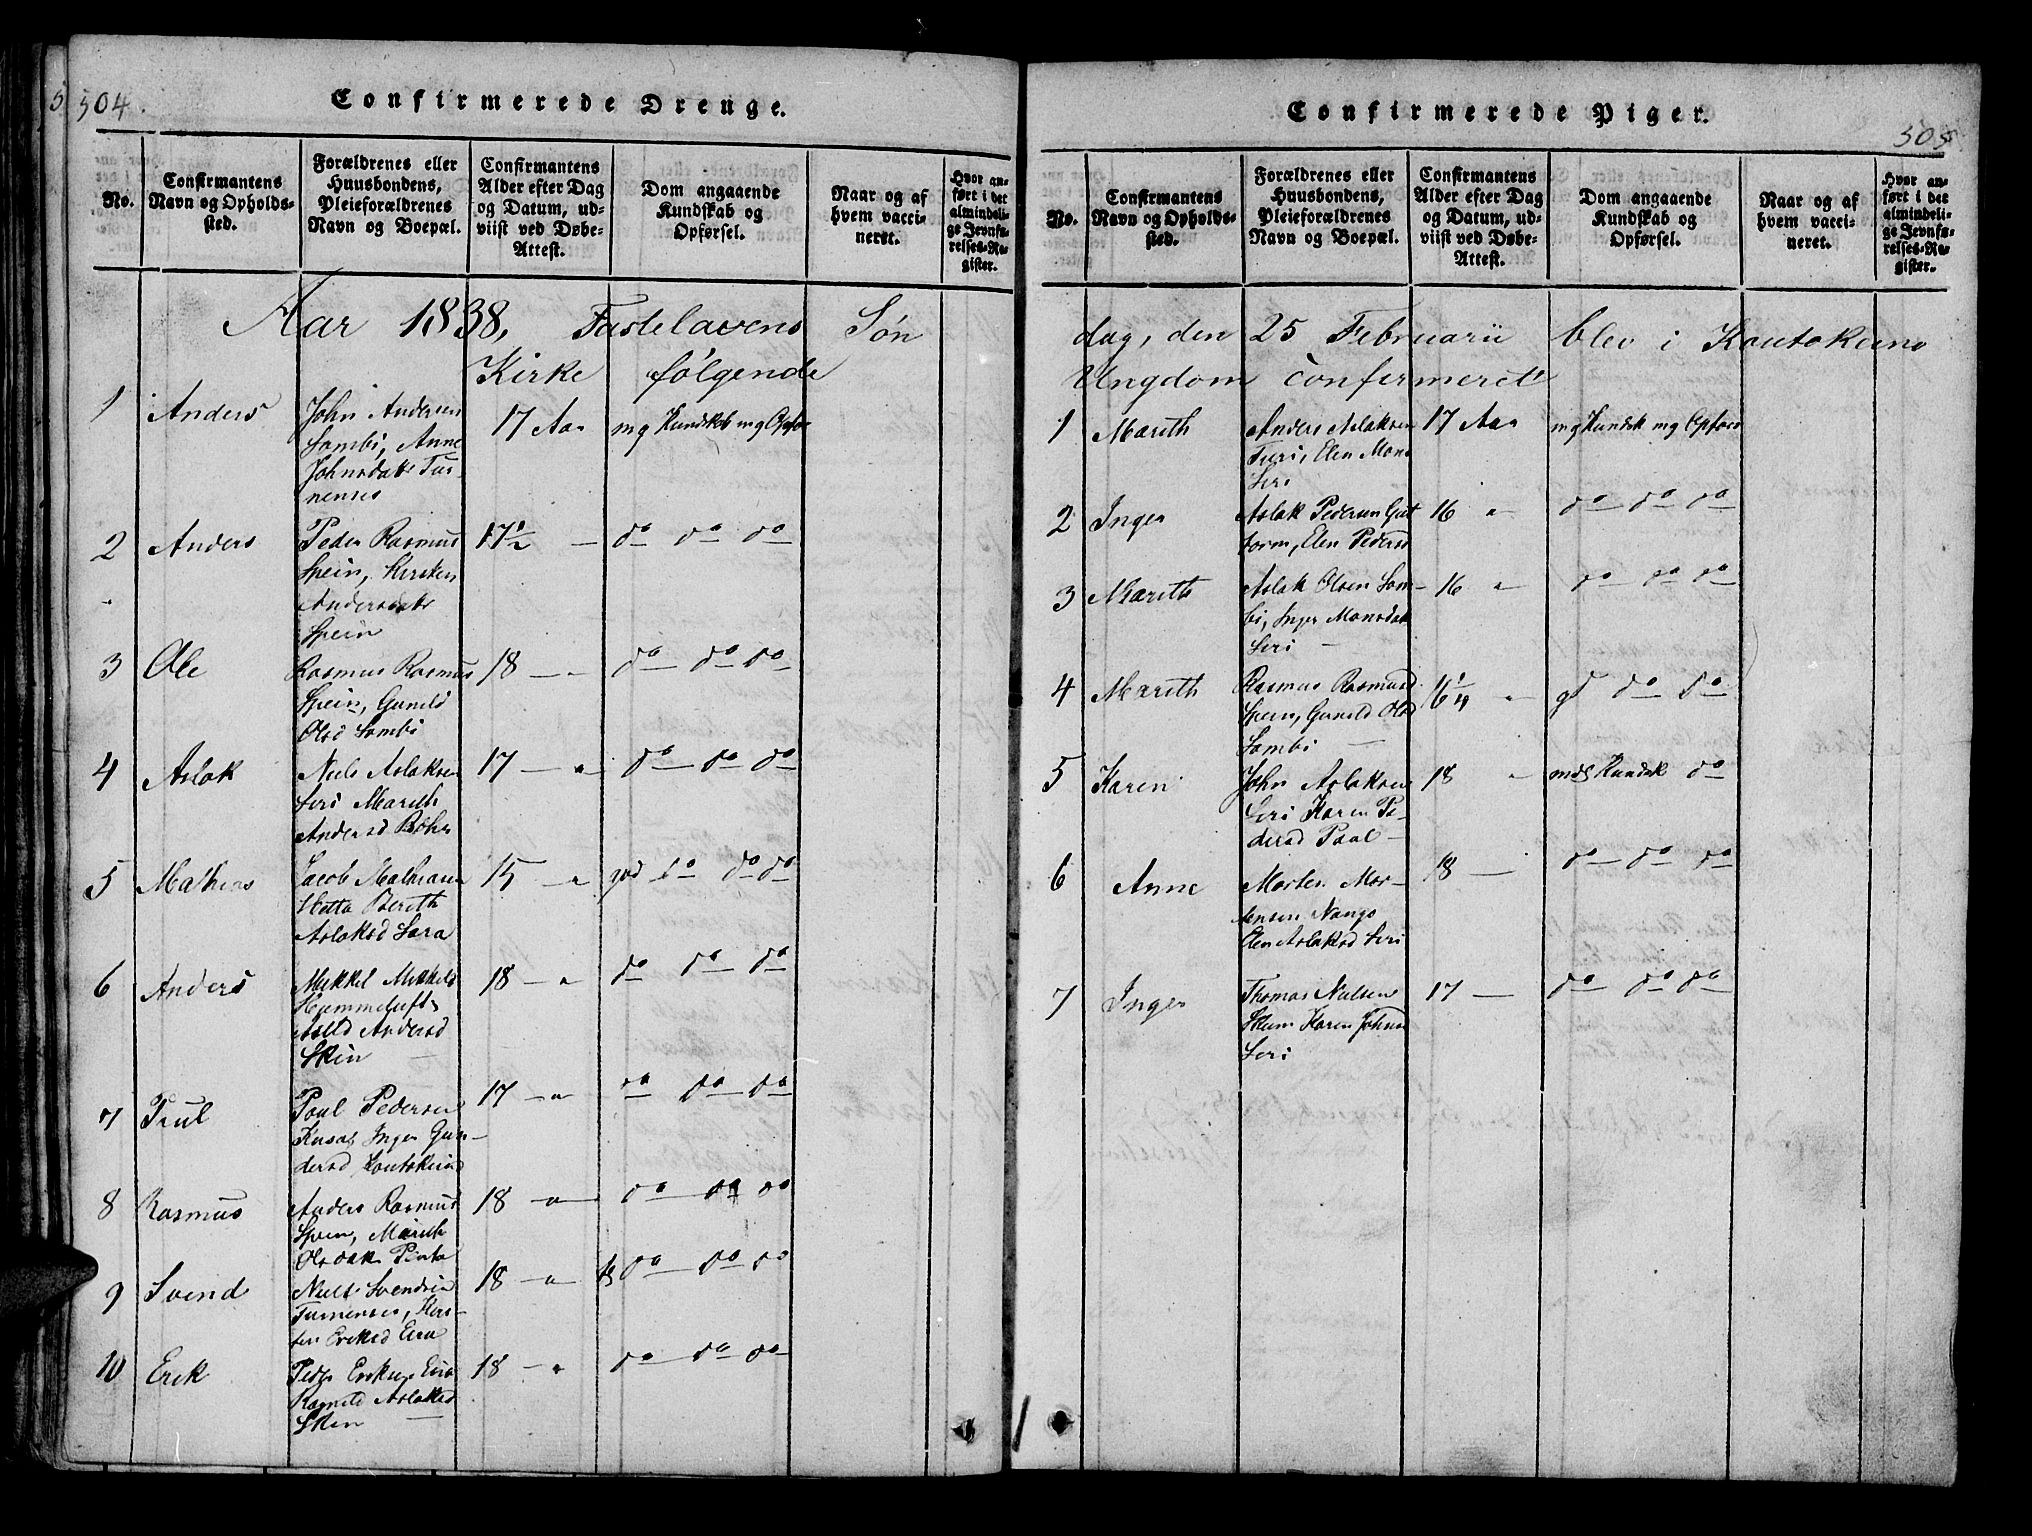 504.
Confirmerede Drenge.
No.
Confirmantens
Navn og Opholds-
sted.
Forældrenes eller
Huusbondens,
Pleieforældrenes
Navn og Boepæl.
Confirmantens
Alder efter Dag
og Datum, ud-
viist ved Døbe-
Attest.
Dom angaaende
Kundskab og
Opførsel.
Naar og af
hvem vacci-
neret.
Hvor an-
ført i det
almindeli-
ge Jevnfø-
relses-Re-
gister.
Aar 1838, Fastelavens Søn
Kirke følgende
1 Anders
John Andersen
Sombi, Anne
Johnsdatr Tur-
nenses
17 Aar
mg Kundskb mg Opfør
2 Anders
Peder Rasmus
Spein, Kirsten
Andersdatr
Spein
17½ —
do do do
3 Ole
Rasmus Rasmus
Spein, Gunild
Olsd Sombi
18 — "
do do do
4 Aslak
Niels Aslaksen
Seri Marith
Andersd
17 — "
do do do
5 Mathias
Jacob Mathiasen
Hetta Berith
Aslaksd Sara
15 — "
god do do do
6 Anders
Mikkel Mikkels
Hjemmeluft,
Andersd
Skin —
18 — "
do do do
7 Poul
Poul Pedersen
Inger Gun-
dersd Koutokeino
17 — "
do do do
8 Rasmus
Anders Rasmus
Spein, Marith
Olsdatr
18 — "
do do do
9 Svend
Niels Svendsen
Turnenses, Kirs-
ten Eriksd Eira
18 — "
do do do
10 Erik
Peder Eriksen Eira
Ragnild Aslaksd
Skin —
18 — "
do do do
Confirmerede Piger.
505
No.
Confirmantens
Navn og Opholds-
sted.
Forældrenes eller
Huusbondens,
Pleieforældrenes
Navn og Boepæl.
Confirmantens
Alder efter Dag
og Datum, ud-
viist ved Døbe-
Attest.
Dom angaaende
Kundskab og
Opførsel.
Naar og af
hvem vacci-
neret.
Hvor an-
ført i det
almindeli-
ge Jevnfø-
relses-Re-
gister.
dag, den 25 Februarii blev i Koutokeino
Ungdom confirmeret
1 Marith
Anders Aslaksen
Turi, Elen Mons
Seri
17 Aar
mg Kundsk mg Opførs
2 Inger
Aslak Pedersen Gut
torm, Elen Pedersd
16 "
do do do
3 Marith
Aslak Olsen Som-
bi, Inger Monsdatr
Seri —
16 "
do do do
4 Marith
Rasmus Rasmusd
Spein, Gunild Olsd
Sombi —
16¼ "
gd do do
5 Karen
John Aslaksen
Seri Karen Pe-
dersd Paal —
18 "
mdl Kundsk do
6 Anne
Morten Mor-
tensen Nango
Elen Aslaksd Seri
18 —
do do do
7 Inger
Thomas Nielsen
Skum Karen Johns
Seri
17 —
do do do